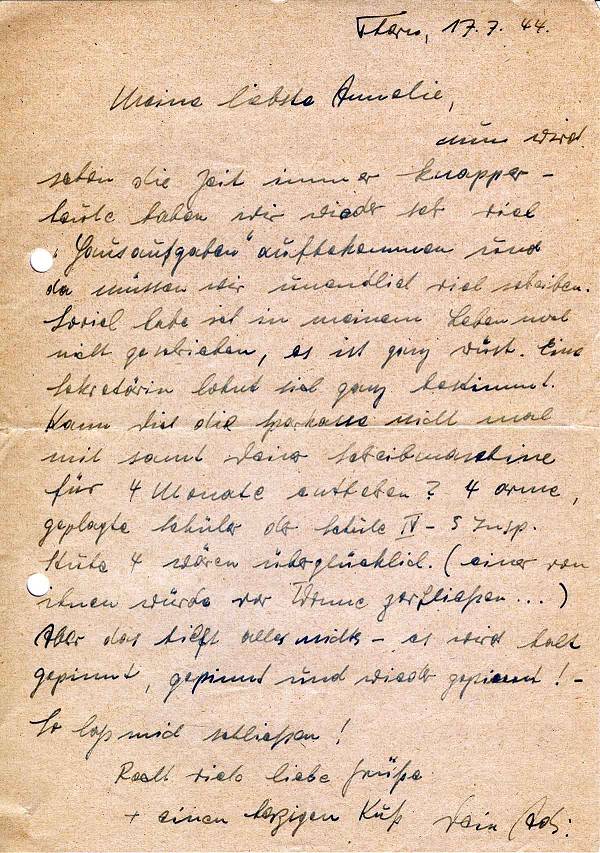 Thorn, 17.7.44.
Meine liebste Annelie,
nun wird
schon die Zeit immer knapper –
heute haben wir wieder sehr viel
"Hausaufgaben" aufbekommen und
da müssen wir unendlich viel schreiben.
Soviel habe ich in meinem Leben noch
nicht geschrieben, es ist ganz wüst. Eine
Sekretärin lohnt sich ganz bestimmt.
Kann dich die Sparkasse nicht mal
mit samt Deiner Schreibmaschine
für 4 Monate entheben? 4 arme,
geplagte Schüler der Schule IV – 5 Insp.
Stube 4 wären überglücklich. (einer von
ihnen würde vor Wonne zerfließen...)
Aber das hilft alles nichts – es wird halt
gepinnt, gepinnt und wieder gepinnt! –
So laß mich schließen!
Recht viele liebe Grüße
+ einen herzigen Kuß Dein